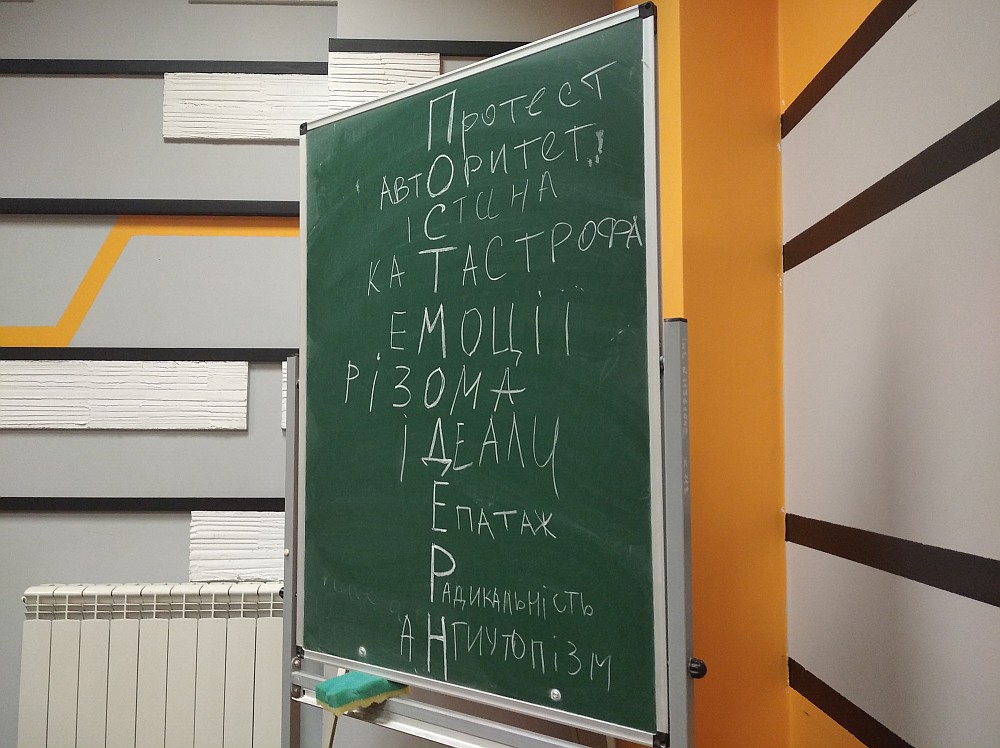 Протест
авторитет!!
істина
катастрофа
емоції
різома
ідеали
Епатаж
Радикальність
антиутопізм